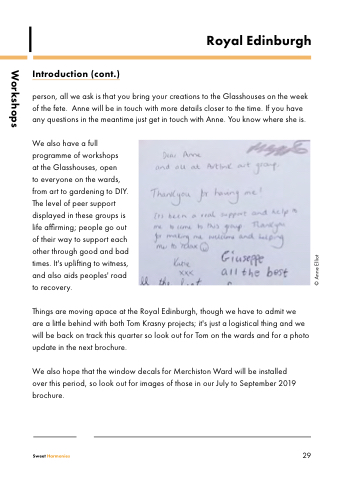 Royal Edinburgh
Workshops
Introduction (cont.)
person, all we ask is that you bring your creations to the Glasshouses on the week
of the fete.  Anne will be in touch with more details closer to the time. If you have
any questions in the meantime just get in touch with Anne. You know where she is.
We also have a full
programme of workshops
at the Glasshouses, open
to everyone on the wards,
from art to gardening to DIY.
The level of peer support
displayed in these groups is
life affirming; people go out
of their way to support each
other through good and bad
times. It's uplifting to witness,
and also aids peoples' road
to recovery.
Dear Anne
and all at Artlink art group.
Thankyou for having me!
Its been a real support and help to
me to come to this group. Thankyou
for making me welcome and helping
me to relax
Katie
xxx
Giuseppe
all the best
© Anne Elliot
Things are moving apace at the Royal Edinburgh, though we have to admit we
are a little behind with both Tom Krasny projects; it's just a logistical thing and we
will be back on track this quarter so look out for Tom on the wards and for a photo
update in the next brochure.
We also hope that the window decals for Merchiston Ward will be installed
over this period, so look out for images of those in our July to September 2019
brochure.
Sweet Harmonies
29